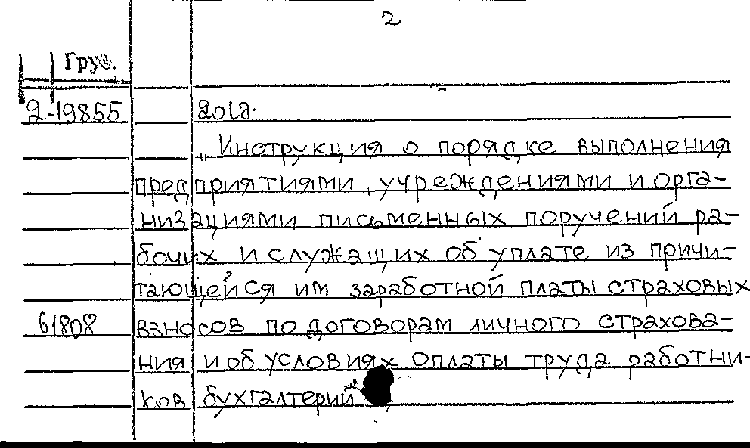 2
Груз.
2-19855 года.
„Инструкция о порядке выполнения
предприятиями, учреждениями и орга-
низациями письменных поручений ра-
бочих и служащих об уплате из причи-
тающейся им заработной платы страховых
61808 взносов по договорам личного страхова-
ния и об условиях оплаты труда работни-
ков бухгалтерий“